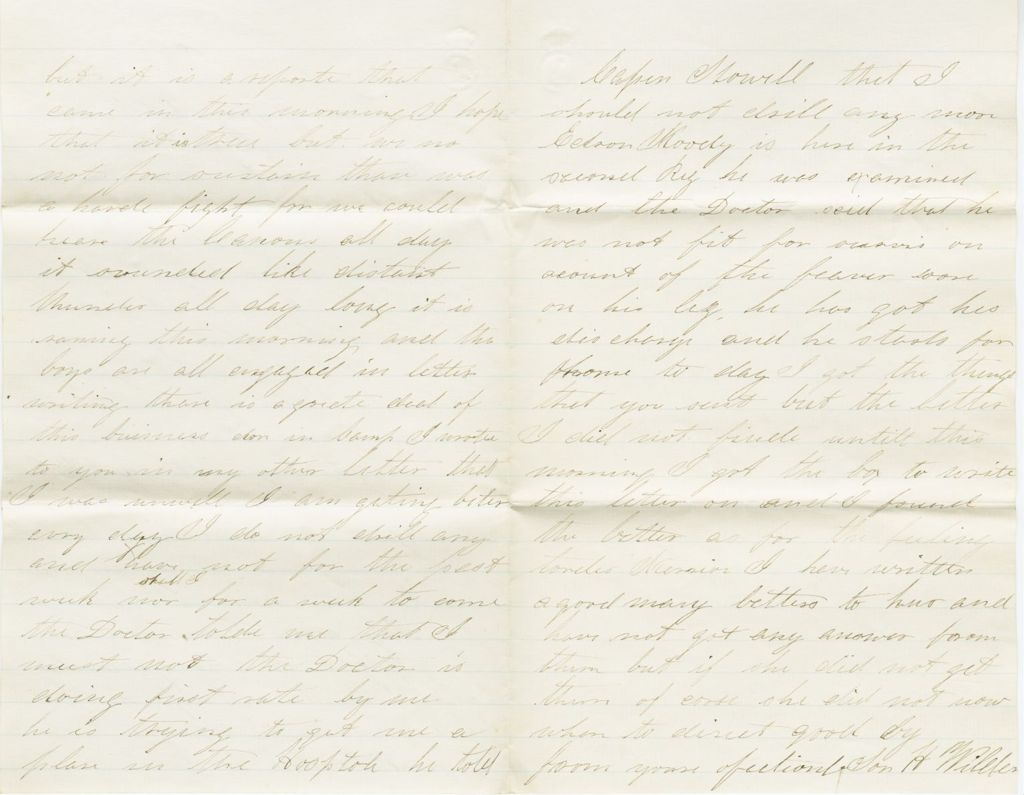 but it is a reporte that
came in this morning I hope
that it is true but we no
not for sertain thare was
a harde fight for we could
heare the Canons all day
it sounded like distant
thunder all day long it is
raning this morning and the
boys are all engaged in letter
writing thare is a greate deal of
this buisness don in Camp I wrote
to you in my other letter that
I was unwell I am gating beter
evry day I do not drill any
and have not for the past
week nor shall I for a week to come
the Doctor tolde me that I
must not the Doctor is
doing first rate by me
he is trying to get me a
place in the Hospital he told
Capen Stowell that I
should not drill any more
Edson Moody is here in the
second Reg he was examined
and the Doctor said that he
was not fit for on
acount of the feaver sore
on his leg he has got his
discharge and he starts for
home to day I got the things
that you sent but the letter
I did not finde untill this
morning I got the box to write
this letter on and I found
the letter as for the feeling
I have writen
a good many letters to hur and
have not get any answer from
them but if she did not get
them of corse she did not now
when to direct good by
from youre afectionl Son H M Wilder